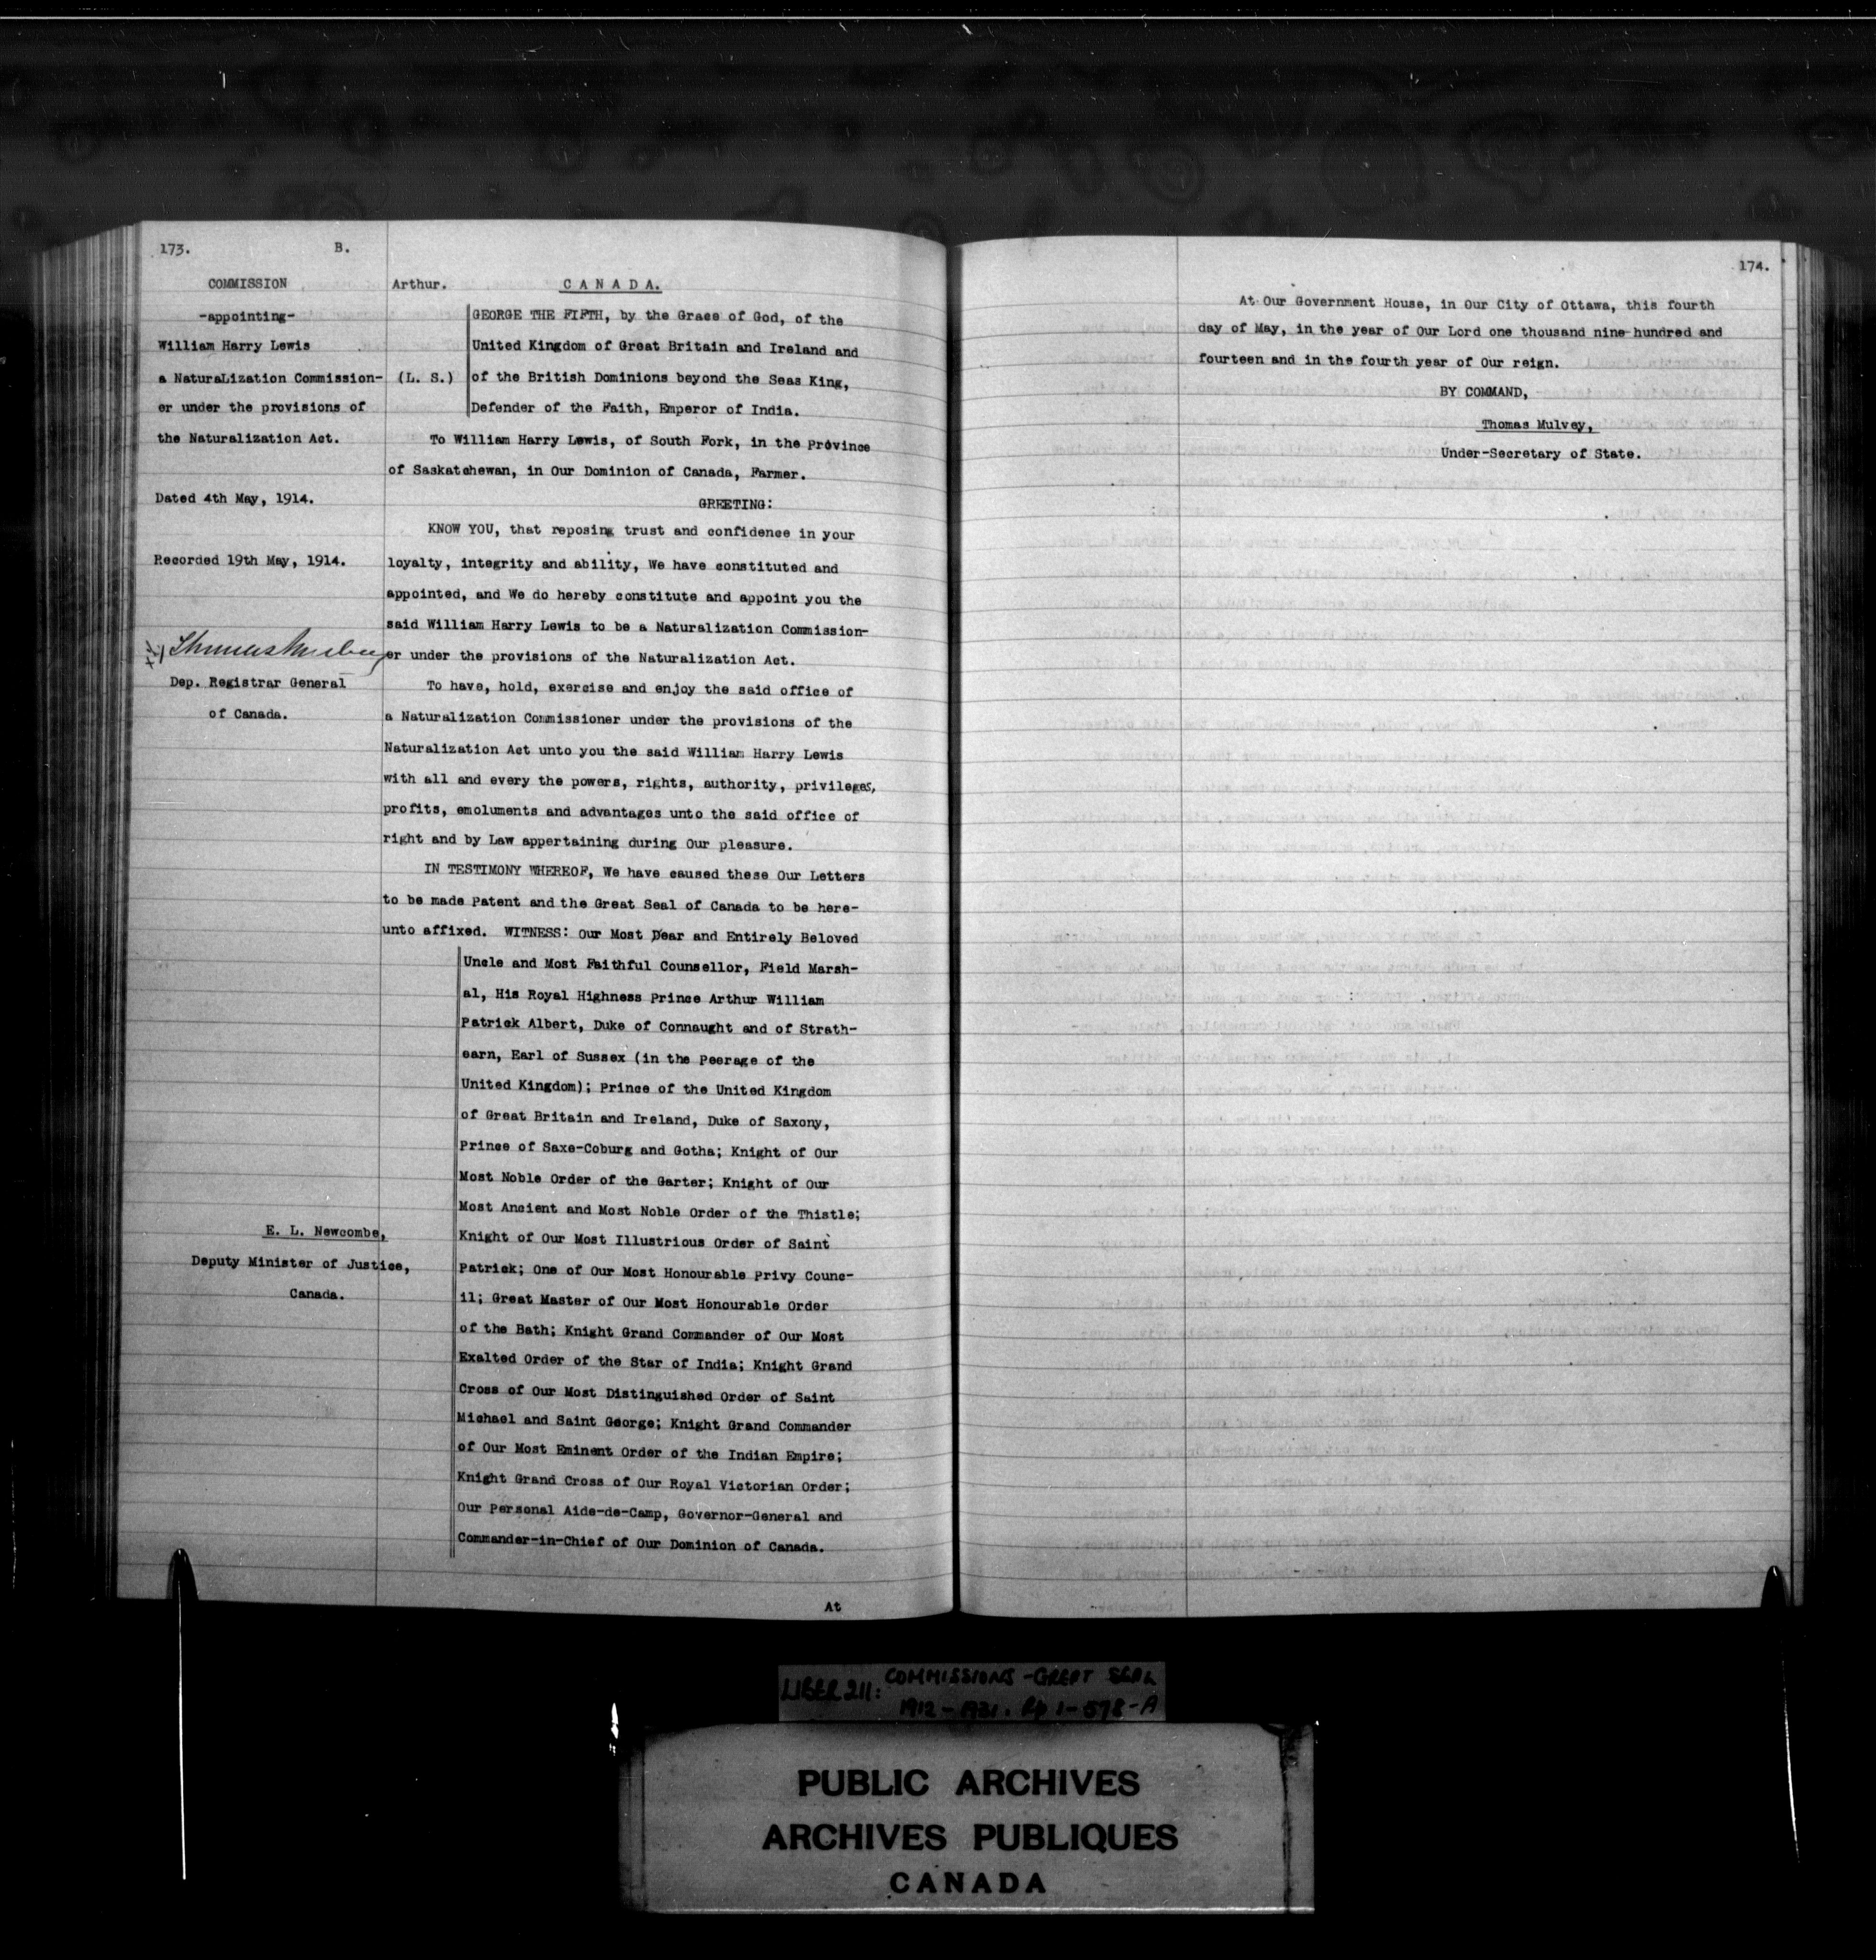 173.
B.
COMMISSION
-appointing-
William Harry Lewis
a NaturaLization Commission-
er under the provisions of
the Naturalization Act.
Dated 4th May, 1914.
Recorded 19th May, 1914.
Thomas Mulvey
Dep. Registrar General
of Canada.
E. L. Newcombe,
Deputy Minister of Justice,
Canada.
Arthur.
CANADA.
(L. S.)
GEORGE THE FIFTH, by the Grace of God, of the
United Kingdom of Great Britain and Ireland and
of the British Dominions beyond the Seas King,
Defender of the Faith, Emperor of India.
To William Harry Lewis, of South Fork, in the Province
of Saskatchewan, in Our Dominion of Canada, Farmer.
GREETING:
KNOW YOU, that reposing trust and confidence in your
loyalty, integrity and ability, We have constituted and
appointed, and We do hereby constitute and appoint you the
said William Harry Lewis to be a Naturalization Commission-
er under the provisions of the Naturalization Act.
To have, hold, exercise and enjoy the said office of
a Naturalization Commissioner under the provisions of the
Naturalization Act unto you the said William Harry Lewis
with all and every the powers, rights, authority, privileges,
profits, emoluments and advantages unto the said office of
right and by Law appertaining during Our pleasure.
IN TESTIMONY WHEREOF, We have caused these Our Letters
to be made Patent and the Great Seal of Canada to be here-
unto affixed. WITNESS: Our Most Dear and Entirely Beloved
Uncle and Most Faithful Counsellor, Field Marsh-
al, His Royal Highness Prince Arthur William
Patrick Albert, Duke of Connaught and of Strath-
earn, Earl of Sussex (in the Peerage of the
United Kingdom); Prince of the United Kingdom
of Great Britain and Ireland, Duke of Saxony,
Prince of Saxe-Coburg and Gotha; Knight of Our
Most Noble Order of the Garter; Knight of Our
Most Ancient and Most Noble Order of the Thistle;
Knight of Our Most Illustrious Order of Saint
Patrick; One of Our Most Honourable Privy Counc-
il; Great Master of Our Most Honourable Order
of the Bath; Knight Grand Commander of Our Most
Exalted Order of the Star of India; Knight Grand
Cross of Our Most Distinguished Order of Saint
Michael and Saint George; Knight Grand Commander
of Our Most Eminent Order of the Indian Empire;
Knight Grand Cross of Our Royal Victorian Order;
Our Personal Aide-de-Camp, Governor-General and
Commander-in-Chief of Our Dominion of Canada.
At
174.
At Our Government House, in Our City of Ottawa, this fourth
day of May, in the year of Our Lord one thousand nine hundred and
fourteen and in the fourth year of Our reign.
BY COMMAND,
Thomas Mulvey,
Under-Secretary of State.
LIBER 211: COMMISSIONS - GREAT SEAL
1912 - 1921. Pp 1-578-A
PUBLIC ARCHIVES
ARCHIVES PUBLIQUES
CANADA